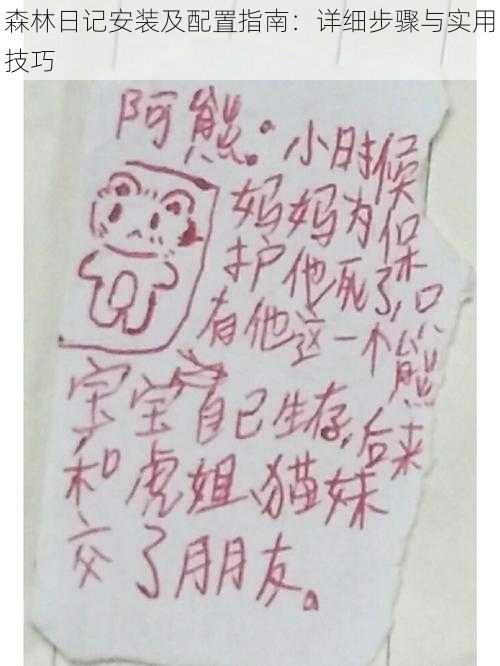 森林日记安装及配置指南：详细步骤与实用
技巧
阿熊：小时候
妈妈为保
护他死了,只
有他这一个熊
宝宝自己生存,后来
和虎姐、猫妹
交了朋友。